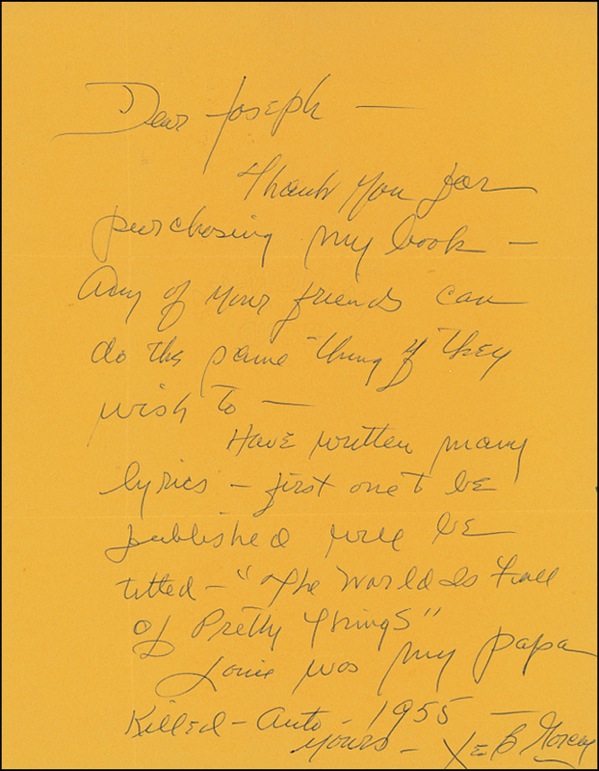 Dear Joseph —
Thank you for
purchasing my book —
Any of your friends can
do the same thing if they
wish to —
Have written many
lyrics — first one to be
published will be
titled — "The World Is Full
Of Pretty Things"
Louie was my papa
Killed — Auto — 1955 —
Yours — Leo B Gorcey